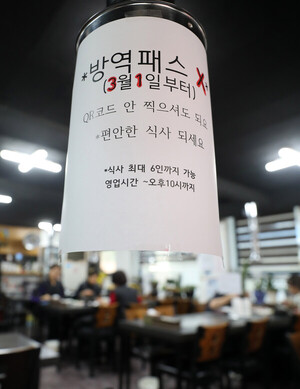 *방역패스 X*
(3월1일부터)
QR코드 안 찍으셔도 되요
*편안한 식사 되세요
*식사 최대 6인까지 가능
영업시간 ~오후10시까지